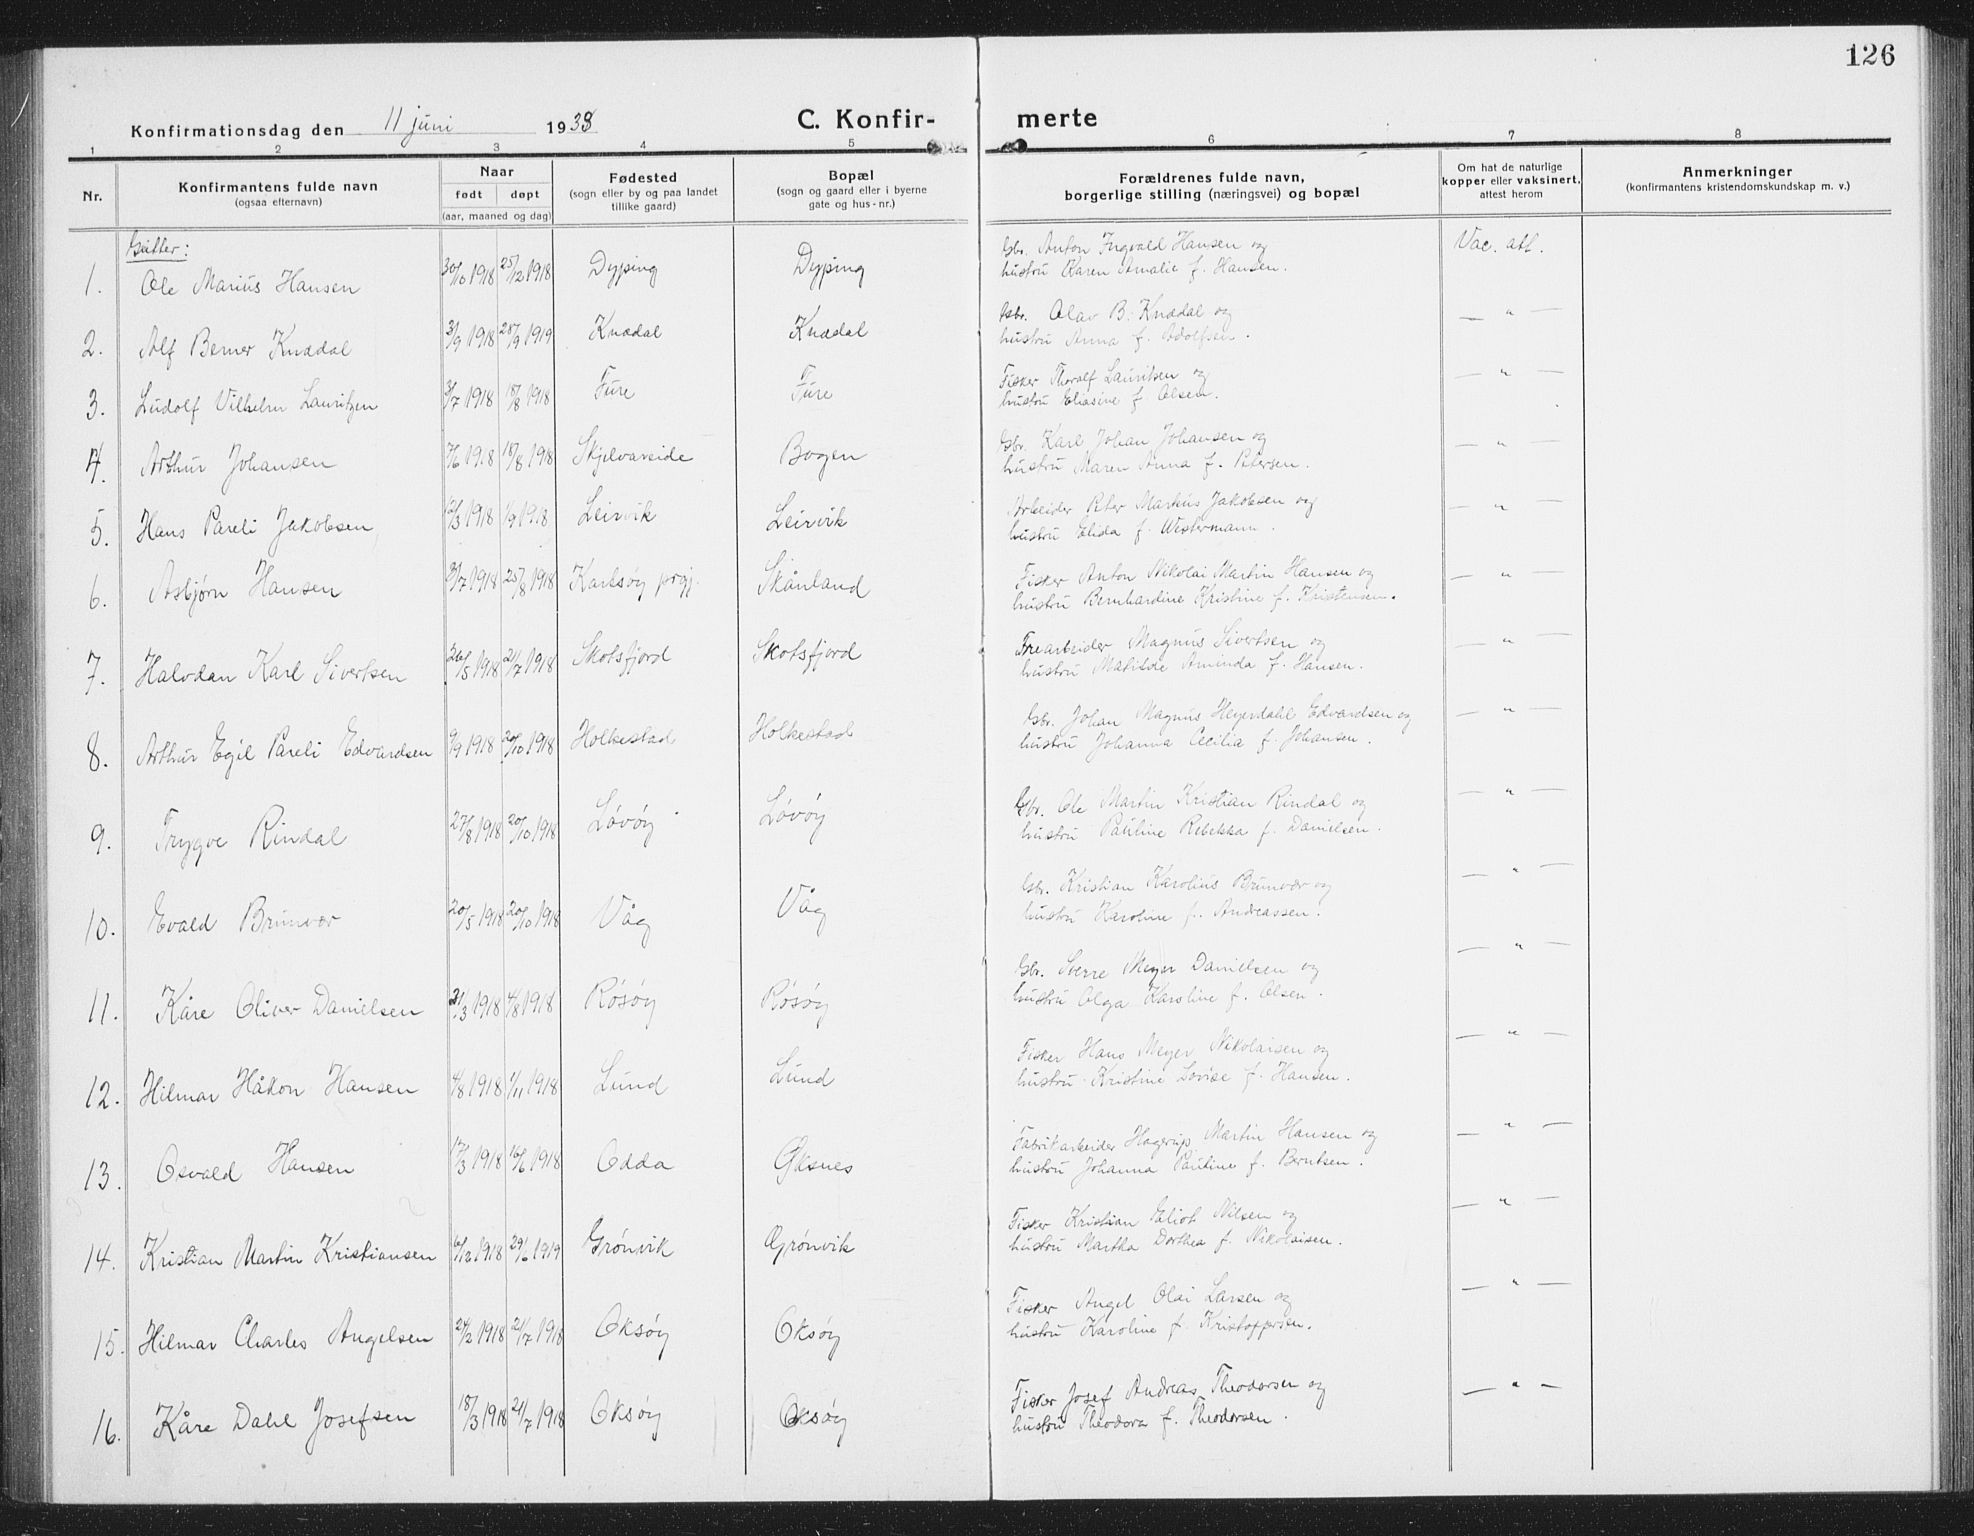 126
Konfirmationsdag den 11 juni 1933
C. Konfir- merte
1 2 3 4 5 6 7 8
Nr. Konfirmantens fulde navn (ogsaa efternavn) Naar født døpt (aar, maaned og dag) Fødested (sogn eller by og paa landet tillike gaard) Bopæl (sogn og gaard eller i byerne gate og hus-nr.) Forældrenes fulde navn, borgerlige stilling (næringsvei) og bopæl Om hat de naturlige kopper eller vaksinert, attest herom Anmerkninger (konfirmantens kristendomskundskap m. v.)
Gutter:
1. Ole Marius Hansen 30/10 1918 25/12 1918 Dyping Dyping Gbr. Anton Ingvald Hansen og Vac. att.
hustru Karen Amalie f. Hansen.
2. Alf Berner Knædal 3/9 1918 28/9 1919 Knædal Knædal Gbr. Olav B. Knædal og — " —
hustru Anna f. Adolfsen.
3. Ludolf Vilhelm Lauritzen 3/7 1918 18/8 1918 Fure Fure Fisker Thoralf Lauritsen og — " —
hustru Eliasine f. Olsen.
4. Arthur Johansen 7/6 1918 18/8 1918 Skjelvareide Bogen Gbr. Karl Johan Johansen og — " —
hustru Maren Anna f. Petersen.
5. Hans Pareli Jakobsen 12/3 1918 1/9 1918 Leirvik Leirvik Arbeider Peter Markus Jakobsen og — " —
hustru Elida f. Westermann.
6. Asbjørn Hansen 31/7 1918 25/8 1918 Karlsøy prgj. Skånland Fisker Anton Nikolai Martin Hansen og — " —
hustru Bernhardine Kristine f. Kristensen.
7. Halvdan Karl Sivertsen 26/5 1918 21/7 1918 Skotsfjord Skotsfjord Trearbeider Magnus Sivertsen og — " —
hustru Matilde Aminda f. Hansen.
8. Arthur Egil Pareli Edvardsen 9/9 1918 20/10 1918 Holkestad Holkestad Gbr. Johan Magnus Heyerdahl Edvardsen og — " —
hustru Johanna Cecilia f. Johansen.
9. Trygve Rindal 27/8 1918 20/10 1918 Løvøy Løvøy Gbr. Ole Martin Kristian Rindal og — " —
hustru Pauline Rebekka f. Danielsen.
10. Evald Brunvær 20/5 1918 20/10 1918 Våg Våg Gbr. Kristian Karolius Brunvær og — " —
hustru Karoline f. Andreassen.
11. Kåre Oliver Danielsen 21/3 1918 4/8 1918 Røsøy Røsøy Gbr. Sverre Meyer Danielsen og — " —
hustru Olga Karoline f. Olsen.
12. Hilmar Håkon Hansen 4/8 1918 1/11 1918 Lund Lund Fisker Hans Meyer Nikolaisen og — " —
hustru Kristine Lovise f. Hansen.
13. Osvald Hansen 17/3 1918 16/6 1918 Odda Øksnes Fabrikarbeider Hagerup Martin Hansen og — " —
hustru Johanna Pauline f. Berntsen.
14. Kristian Martin Kristiansen 6/12 1918 29/6 1919 Grønvik Grønvik Fisker Kristian Eliot Nilsen og — " —
hustru Martha Dorthea f. Nikolaisen.
15. Hilmar Charles Angelsen 24/2 1918 21/7 1918 Oksøy Oksøy Fisker Angel Olai Larsen og — " —
hustru Karoline f. Kristoffersen.
16. Kåre Dahl Josefsen 18/3 1918 21/7 1918 Oksøy Oksøy Fisker Josef Andreas Theodorsen og — " —
hustru Theodora f. Theodorsen.